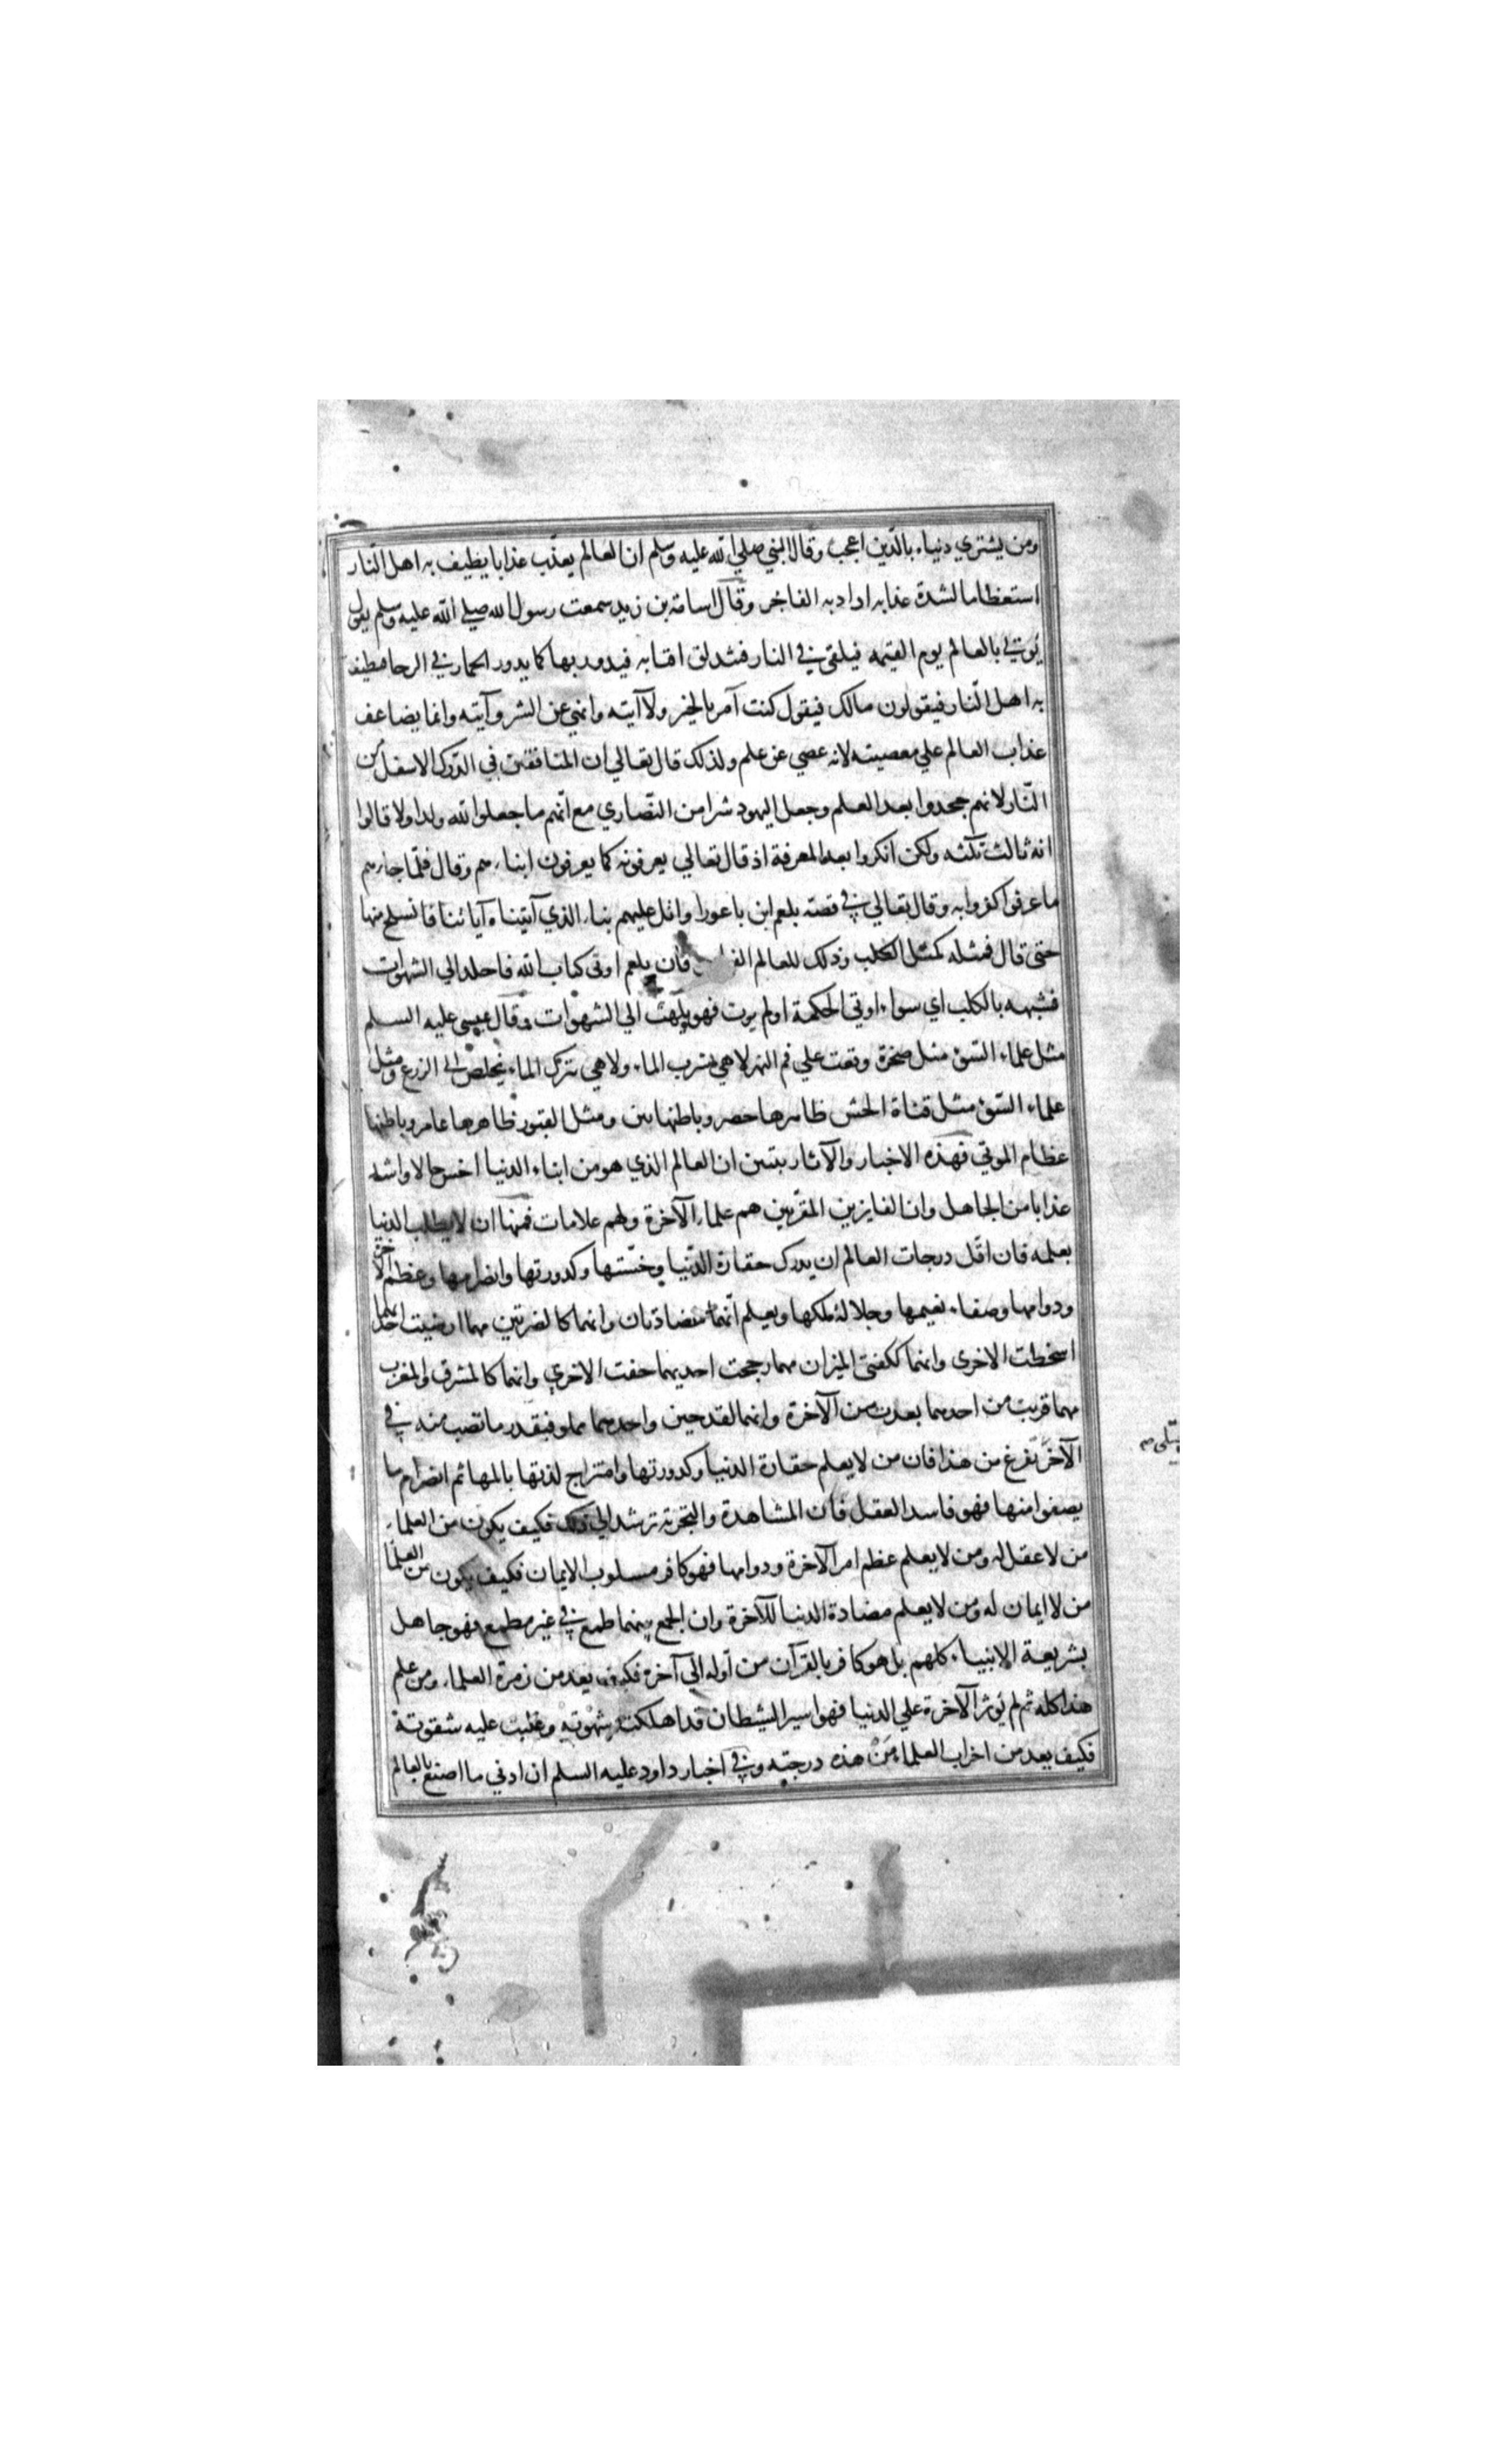 ومن يشتري دنياه بالدّين اعجب وقال النبي صلي الله عليه وسلم ان العالم يعذّب عذابا يطيف به اهل النّار
استعظاما لشدة عذابه اراد به الفاجر وقال اسامة بن زيد سمعت رسول الله صلي الله عليه وسلم يقول
يؤتي بالعالم يوم القيمه فيلقي في النار فتندلق اقتابه فيدور بها كما يدور الحمار في الرحا فيطيف
به اهل النّار فيقولون مالك فيقول كنت آمر بالخير ولا آتيه وانهي عن الشر وآتيه وانما يضاعف
عذاب العالم علي معصيته لانه عصي عن علم ولذلك قال تعالي ان المنافقين في الدّرك الاسفل من
النّار لانهم جحدوا بعد العلم وجعل اليهود شرا من النّصاري مع انّهم ما جعلوا لله ولدا ولا قالوا
انه ثالث ثلثه ولكن انكروا بعد المعرفة اذ قال تعالي يعرفونه كما يعرفون ابناءهم وقال فلمّا جاءهم
ما عرفوا كفروا به وقال تعالي في قصته بلعم ابن باعورا واتل عليهم نباء الذي آتيناه آياتنا فانسلخ منها
حتى قال فمثله كمثل الكلب وذلك للعالم فان بلعم اوتى كتاب الله فاخلد الي الشهوات
فشبهه بالكلب اي سواء اوتي الحكمة او لم يوت فهو يلهث الي الشهوات وقال عيسى عليه السلم
مثل علماء السّوء مثل صخرة وقعت علي فم النهر لا هي تشرب الماء ولا هي تترك الماء يخلص الى الزرع ومثل
علماء السّوء مثل قناة الحش ظاهرها حصر وباطنها نتن ومثل القبور ظاهرها عامر وباطنها
عظام الموتي فهذه الاخبار والآثار يتبين ان العالم الذي هو من ابناء الدنيا اخس حالا واشد
عذابا من الجاهل وان الفايزين المقرّبين هم علماء الآخرة ولهم علامات فمنها ان لا يطلب الدنيا
بعلمه فان اقل درجات العالم ان يدرك حقارة الدّنيا وخسّتها وكدورتها وانصرامها وعظم الآخرة
ودوامها وصفاء نعيمها وجلالة ملكها ويعلم انّهما متضادتان وانهما كالضرتين مهما ارضيت احديهما
اسخطت الاخرى وانهما ككفتى الميزان مهما رجحت احديهما خفت الاخري وانهما كالمشرق والمغرب
مهما قربت من احدهما بعدت من الآخرة وانهما لقدحين واحدهما مملو فبقدر ما تصب منه في
الآخر تفرغ من هذا فان من لا يعلم حقارة الدنيا وكدورتها وامتزاج لذتها بالمها ثم انصرام ما
يصفوا منها فهو فاسد العقل فان المشاهدة والتجربة ترشد الي ذلك فكيف يكون من العلماء
من لا عقل له ومن لا يعلم عظم امر الآخرة ودوامها فهو كافر مسلوب الايمان فكيف يكون من العلما
من لا ايمان له ومن لا يعلم مضادة الدنيا للآخرة وان الجمع بينهما طمع في غير مطمع فهو جاهل
بشريعة الانبياء كلهم بل هو كافر بالقرآن من أوله الي آخره فكيف يعد من زمرة العلماء ومن علم
هذا كله ثم لم يؤثر الآخرة علي الدنيا فهو اسير الشيطان قد اهلكته شهوته وغلبت عليه شقوته
فكيف يعد من احزاب العلماء من هذه درجته وفي اخبار داود عليه السلم ان ادني ما اصنع بالعالم